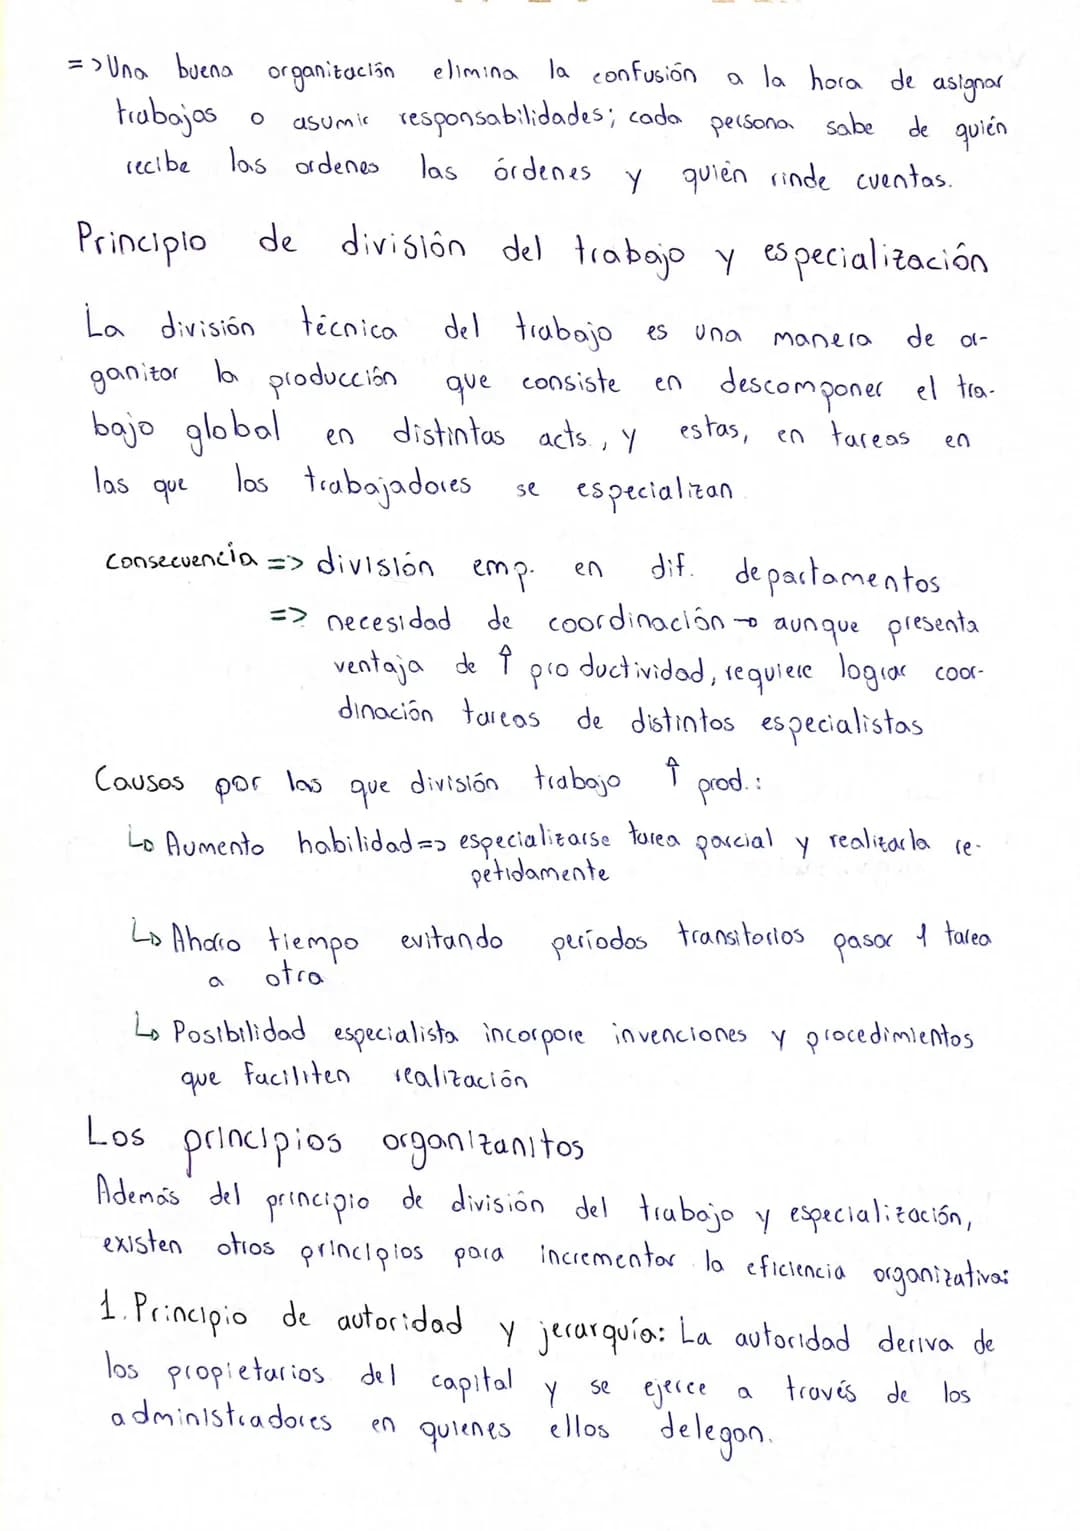 => Una buena organización elimina la confusión a la hora de asignar
trabajos o asumir responsabilidades; cada persona sabe de quién
recibe las ordenes las órdenes y quién rinde cuentas.
Principio de división del trabajo y especialización
La división técnica del trabajo es una manera de or-
ganizar la producción que consiste en descomponer el tra-
bajo global en distintas acts., y estas, en tareas en
las que los trabajadores se especializan
consecuencia => división emp. en dif. departamentos
=> necesidad de coordinación → aunque presenta
ventaja de ↑ productividad, requiere lograr coor-
dinación tareas de distintos especialistas
Causas por las que división trabajo ↑ prod.:
↳ Aumento habilidad => especializarse tarea parcial y realizarla re-
petidamente
↳ Ahorro tiempo evitando períodos transitorios pasar 1 tarea
a otra
↳ Posibilidad especialista incorpore invenciones y procedimientos
que faciliten realización
Los principios organizanitos
Además del principio de división del trabajo y especialización,
existen otros principios para incrementar la eficiencia organizativa:
1. Principio de autoridad y jerarquía: La autoridad deriva de
los propietarios del capital y se ejerce a través de los
administradores en quienes ellos delegan.